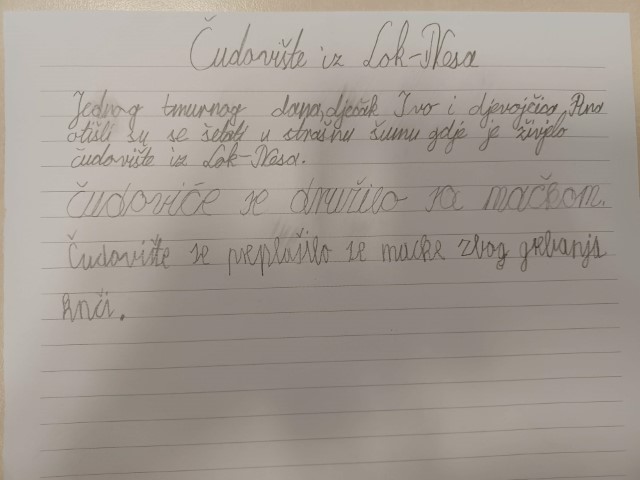 Čudovište iz Lok-Nesa
Jednog tmurnog dana, dječak Ivo i djevojčica, Ana
otišli su se šetati u strašnu šumu gdje je živjelo
čudovište iz Lok-Nesa.
čudoviče se družilo sa mačkom.
Čudovište se preplašilo se macke zbog grebanja
krvi.